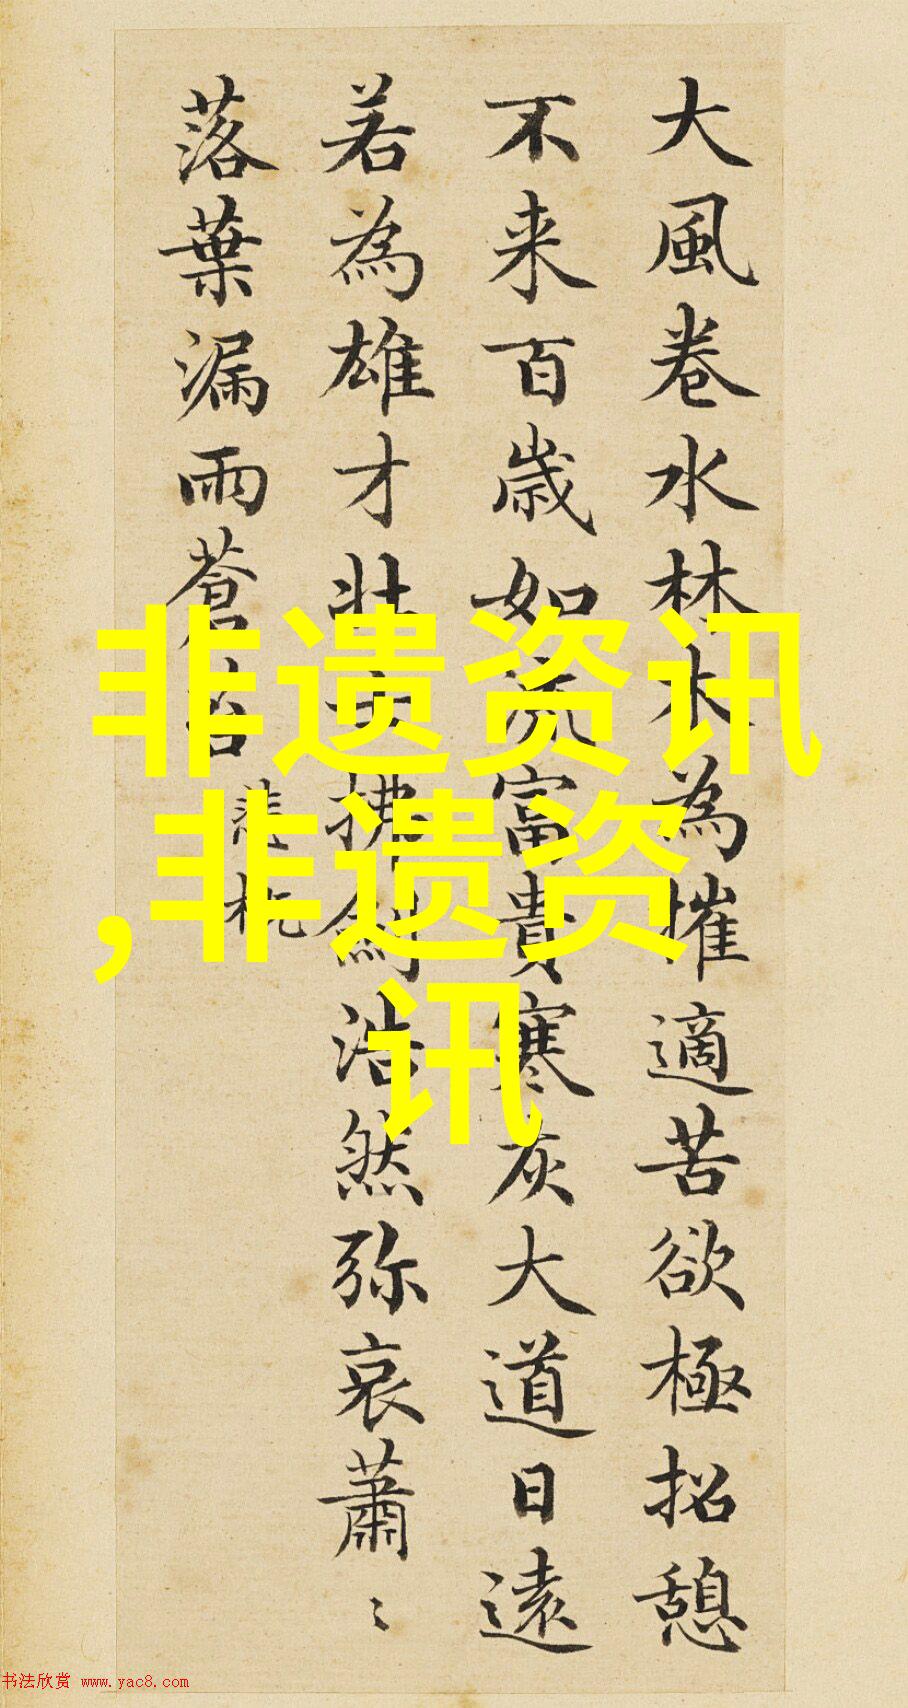 大風卷水林木為摧適苦欲極招憩
不来百歲如流富貴寒灰大道日遠
若為雄才壮士拂劍浩然弥哀蕭〻
落葉漏雨蒼苔
悲
非遗资讯
,非遗资
讯
书法欣赏 www.yac8.com